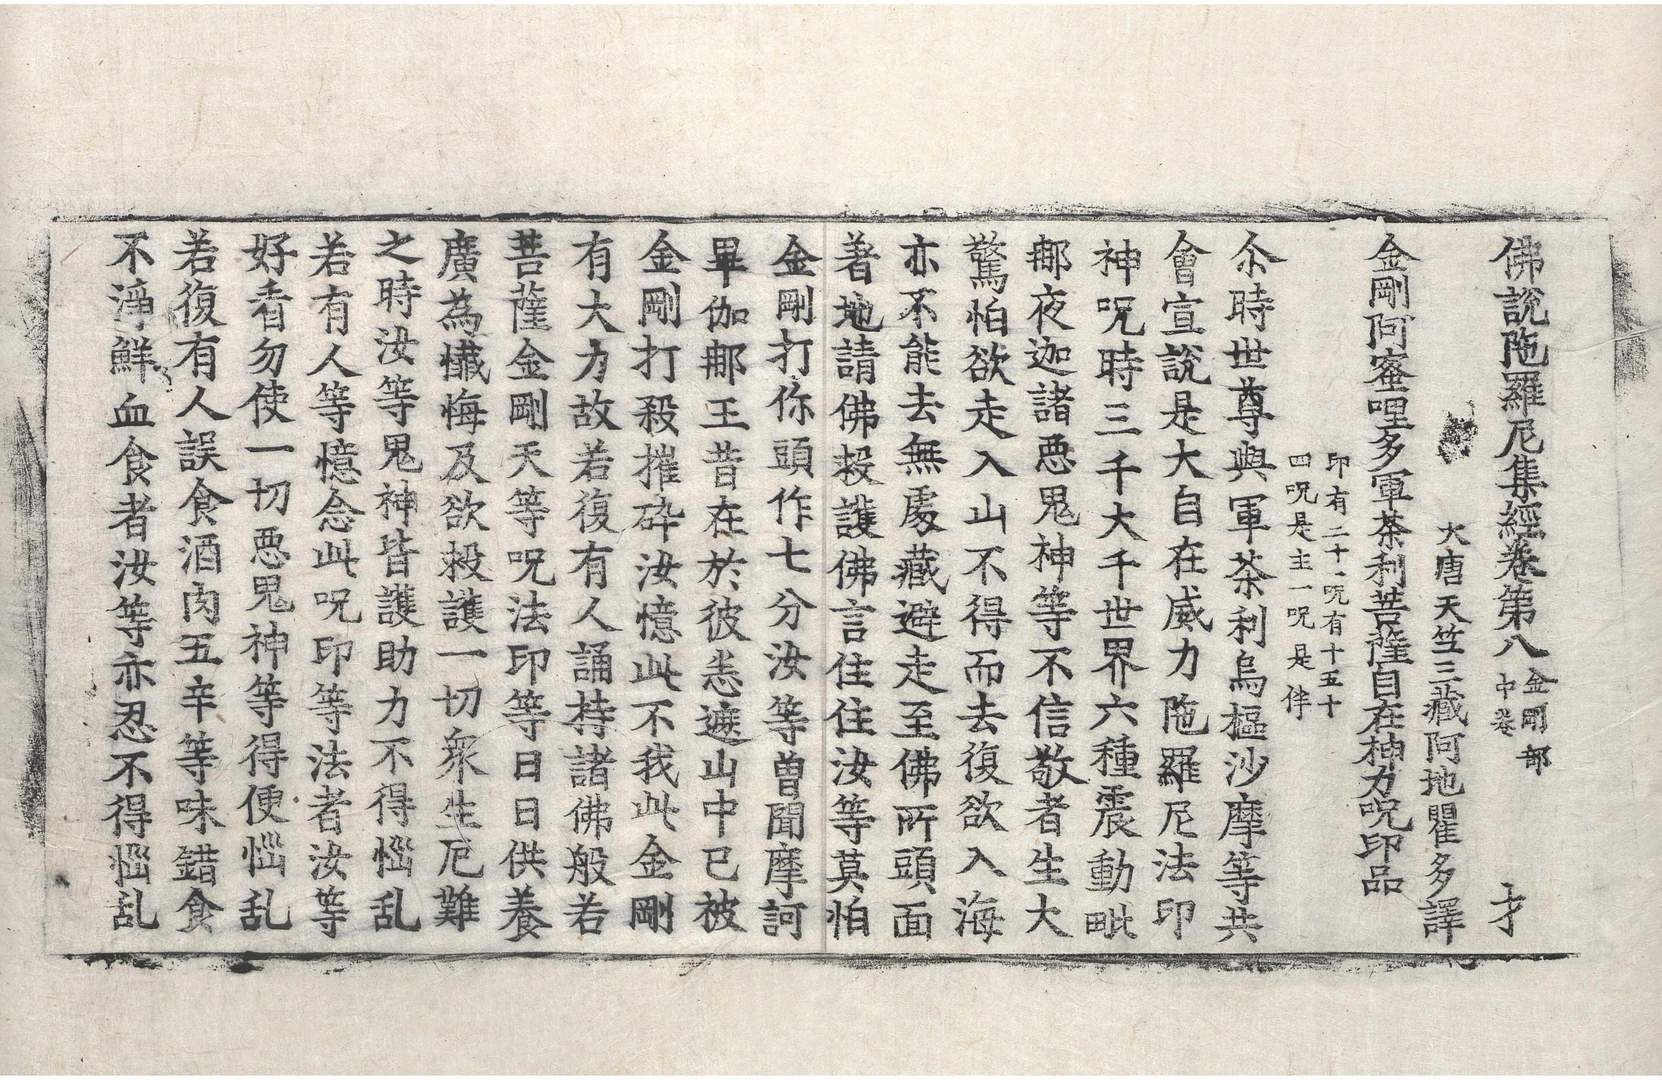 佛說陁羅尼集經卷第八 金剛部中卷 才
大唐天竺三藏阿地瞿多譯
金剛阿蜜哩多軍茶利菩薩自在神力呪印品
印有二十一呪有十五十
四呪是主一呪是伴
尒時世尊與軍茶利烏樞沙摩等共
會宣說是大自在威力陁羅尼法印
神呪時三千大千世界六種震動毗
那夜迦諸惡鬼神等不信敬者生大
驚怕欲走入山不得而去復欲入海
亦不能去無處藏避走至佛所頭面
著地請佛投護佛言住住汝等莫怕
金剛打你頭作七分汝等曽聞摩訶
畢伽那王昔在於彼恙遮山中已被
金剛打殺摧碎汝憶此不我此金剛
有大力故若復有人誦持諸佛般若
菩薩金剛天等呪法印等日日供養
廣為懺悔及欲救護一切衆生厄難
之時汝等鬼神皆護助力不得惱乱
若有人等憶念此呪印等法者汝等
好看勿使一切惡鬼神等得便惱乱
若復有人誤食酒肉五辛等味錯食
不淨鮮血食者汝等亦忍不得惱乱